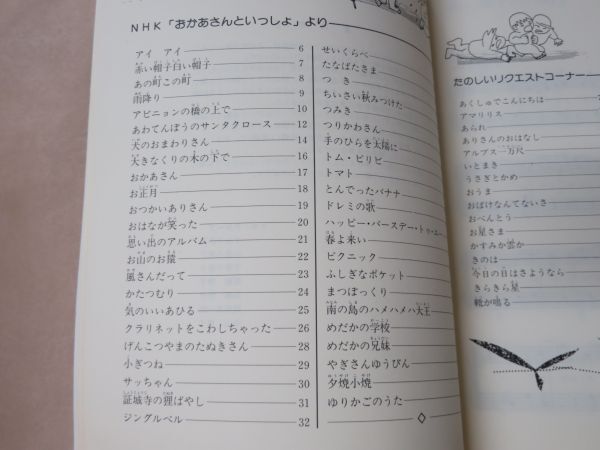 NHK「おかあさんといっしょ」より
アイ アイ 6
赤い帽子白い帽子 7
あの町この町 8
雨降り 9
アビニョンの橋の上で 10
あわてんぼうのサンタクロース 12
天のおまわりさん 14
大きなくりの木の下で 16
おかあさん 17
お正月 18
おつかいありさん 19
おはなが笑った 20
思い出のアルバム 21
お山のお猿 22
風さんだって 23
かたつむり 24
気のいいあひる 25
クラリネットをこわしちゃった 26
げんこつやまのたぬきさん 28
小ぎつね 29
サッちゃん 30
証城寺の狸ばやし 31
ジングルベル 32
せいくらべ
たなばたさま
つき
ちいさい秋みつけた
つみき
つりかわさん
手のひらを太陽に
トム・ピリビ
トマト
とんでったバナナ
ドレミの歌
ハッピー・バースデー・トゥ・ユー
春よ来い
ピクニック
ふしぎなポケット
まつぼっくり
南の島のハメハメハ大王
めだかの学校
めだかの兄妹
やぎさんゆうびん
夕焼小焼
ゆりかごのうた
たのしいリクエストコーナー
あくしゅでこんにちは
アマリリス
あられ
ありさんのおはなし
アルプス一万尺
いとまき
うさぎとかめ
おうま
おばけなんてないさ
おべんとう
お星さま
かすみか雲か
きのは
今日の日はさようなら
きらきら星
靴が鳴る